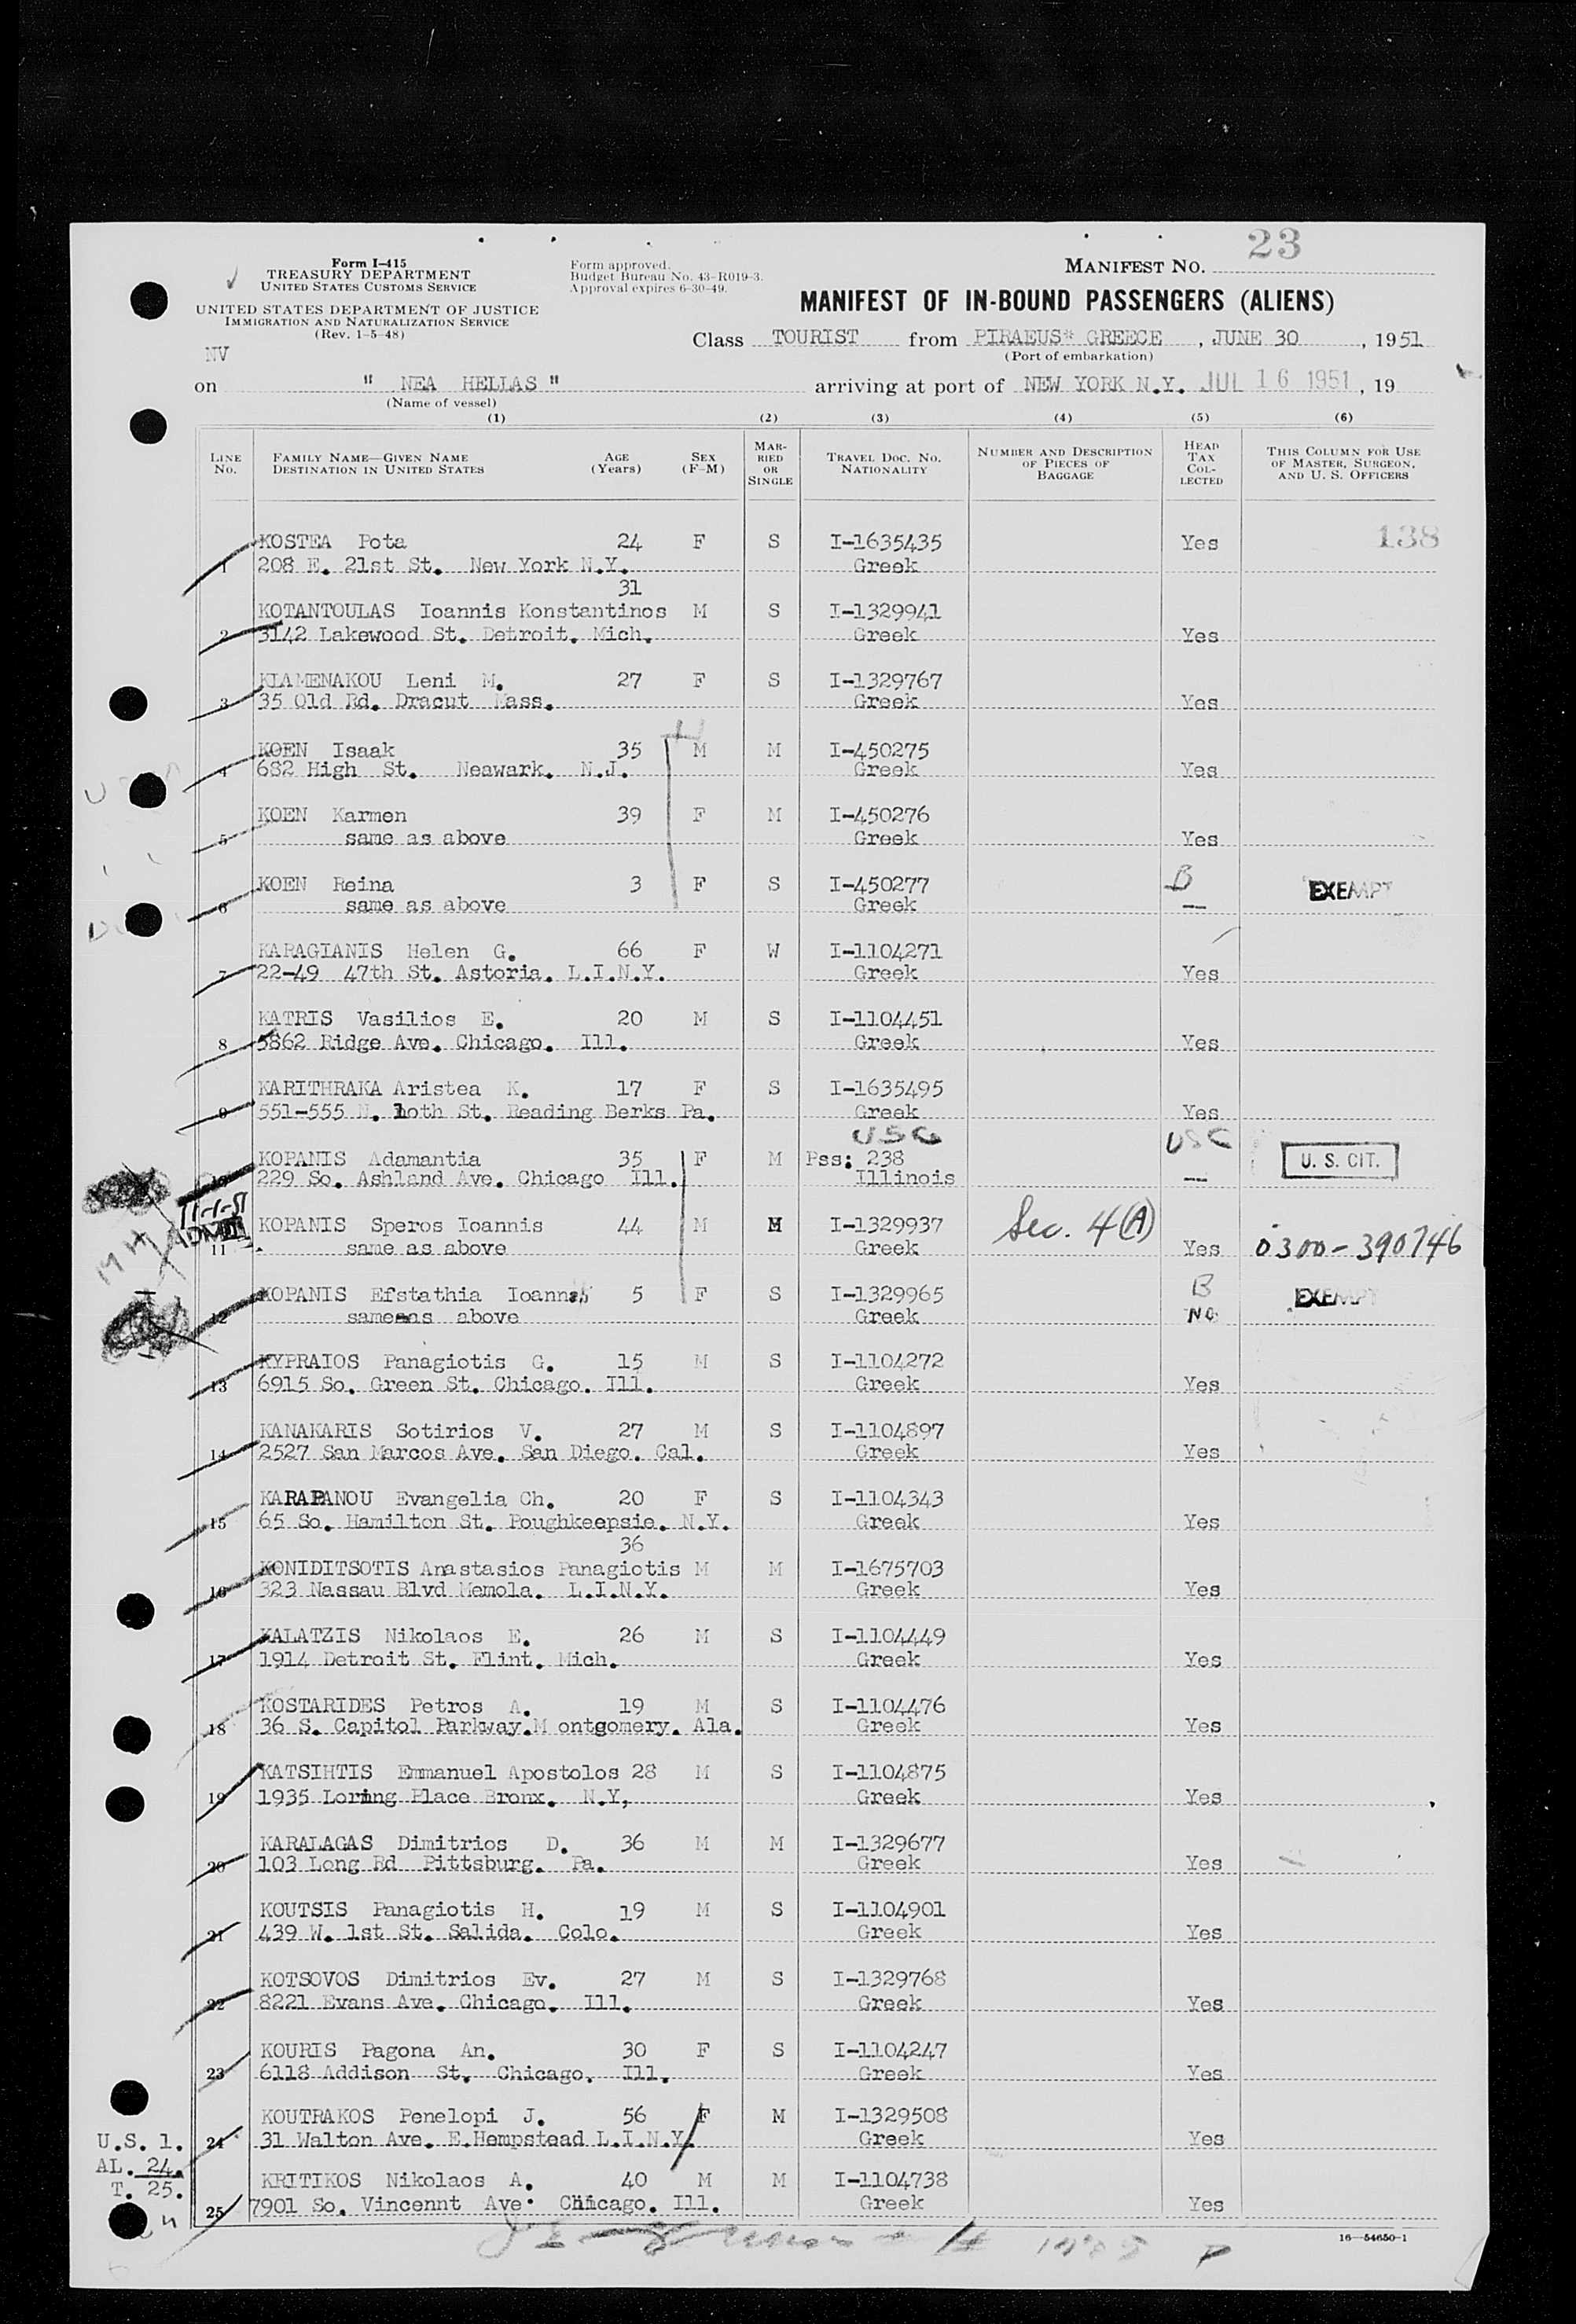 23
Form I-415
TREASURY DEPARTMENT
UNITED STATES CUSTOMS SERVICE
UNITED STATES DEPARTMENT OF JUSTICE
IMMIGRATION AND NATURALIZATION SERVICE
(Rev. 1-5-48)
Form approved.
Budget Bureau No. 43-R019-3.
Approval expires 6-30-49.
MANIFEST NO.
MANIFEST OF IN-BOUND PASSENGERS (ALIENS)
Class TOURIST from PIRAEUS* GREECE , JUNE 30 , 1951
(Port of embarkation)
NV
on " NEA HELLAS " arriving at port of NEW YORK N.Y. JUL 16 1951 , 19
(Name of vessel)
(1) (2) (3) (4) (5) (6)
LINE No. FAMILY NAME—GIVEN NAME DESTINATION IN UNITED STATES AGE (Years) SEX (F-M) MARRIED OR SINGLE TRAVEL DOC. NO. NATIONALITY NUMBER AND DESCRIPTION OF PIECES OF BAGGAGE HEAD TAX COLLECTED THIS COLUMN FOR USE OF MASTER, SURGEON, AND U. S. OFFICERS
138
KOSTEA Pota 24 F S I-1635435 Yes
1 208 E. 21st St. New York N.Y. Greek
31
KOTANTOULAS Ioannis Konstantinos M S I-1329941
2 3142 Lakewood St. Detroit. Mich. Greek Yes
KLAMENAKOU Leni M. 27 F S I-1329767
3 35 Old Rd. Dracut Mass. Greek Yes
KOEN Isaak 35 M M I-450275
4 682 High St. Neawark. N.J. Greek Yes
KOEN Karmen 39 F M I-450276
5 same as above Greek Yes
KOEN Reina 3 F S I-450277 B EXEMPT
6 same as above Greek —
KARAGIANIS Helen G. 66 F W I-1104271
7 22-49 47th St. Astoria. L.I.N.Y. Greek Yes
KATRIS Vasilios E. 20 M S I-1104451
8 5862 Ridge Ave. Chicago. Ill. Greek Yes
KARITHRAKA Aristea K. 17 F S I-1635495
9 551-555 N. 10th St. Reading Berks Pa. Greek Yes
USC USC
KOPANIS Adamantia 35 F M Pss: 238 U. S. CIT.
10 229 So. Ashland Ave. Chicago Ill. Illinois —
11-1-51
KOPANIS Speros Ioannis 44 M M I-1329937 Sec. 4(A)
11 same as above Greek Yes 0300-390746
KOPANIS Efstathia Ioannis 5 F S I-1329965 B EXEMPT
12 sameeas above Greek No
KYPRAIOS Panagiotis G. 15 M S I-1104272
13 6915 So. Green St. Chicago. Ill. Greek Yes
KANAKARIS Sotirios V. 27 M S I-1104897
14 2527 San Marcos Ave. San Diego. Cal. Greek Yes
KARAPANOU Evangelia Ch. 20 F S I-1104343
15 65 So. Hamilton St. Poughkeepsie. N.Y. Greek Yes
36
KONIDITSOTIS Anastasios Panagiotis M M I-1675703
16 323 Nassau Blvd Memola. L.I.N.Y. Greek Yes
KALATZIS Nikolaos E. 26 M S I-1104449
17 1914 Detroit St. Flint. Mich. Greek Yes
KOSTARIDES Petros A. 19 M S I-1104476
18 36 S. Capitol Parkway.M ontgomery. Ala. Greek Yes
KATSIHTIS Emmanuel Apostolos 28 M S I-1104875
19 1935 Loring Place Bronx. N.Y, Greek Yes
KARALAGAS Dimitrios D. 36 M M I-1329677
20 103 Long Rd Pittsburg. Pa. Greek Yes
KOUTSIS Panagiotis H. 19 M S I-1104901
21 439 W. 1st St. Salida. Colo. Greek Yes
KOTSOVOS Dimitrios Ev. 27 M S I-1329768
22 8221 Evans Ave. Chicago. Ill. Greek Yes
KOURIS Pagona An. 30 F S I-1104247
23 6118 Addison St. Chicago. Ill. Greek Yes
KOUTRAKOS Penelopi J. 56 F M I-1329508
U.S. 1. 24 31 Walton Ave. E.Hempstead L.I.N.Y. Greek Yes
AL. 24.
T. 25.
KRITIKOS Nikolaos A. 40 M M I-1104738
25 7901 So. Vincennt Ave. Chicago. Ill. Greek Yes
16—54650-1